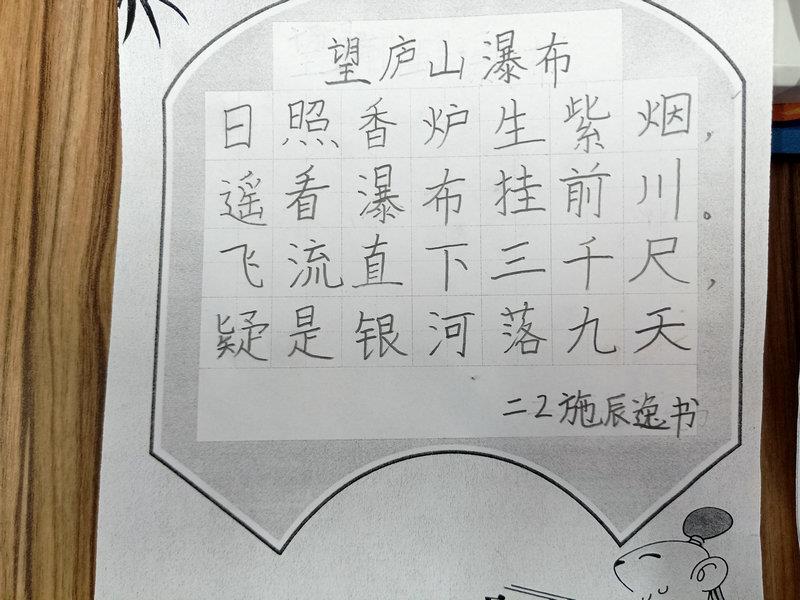 望庐山瀑布
日照香炉生紫烟，
遥看瀑布挂前川。
飞流直下三千尺，
疑是银河落九天
二2施辰逸书